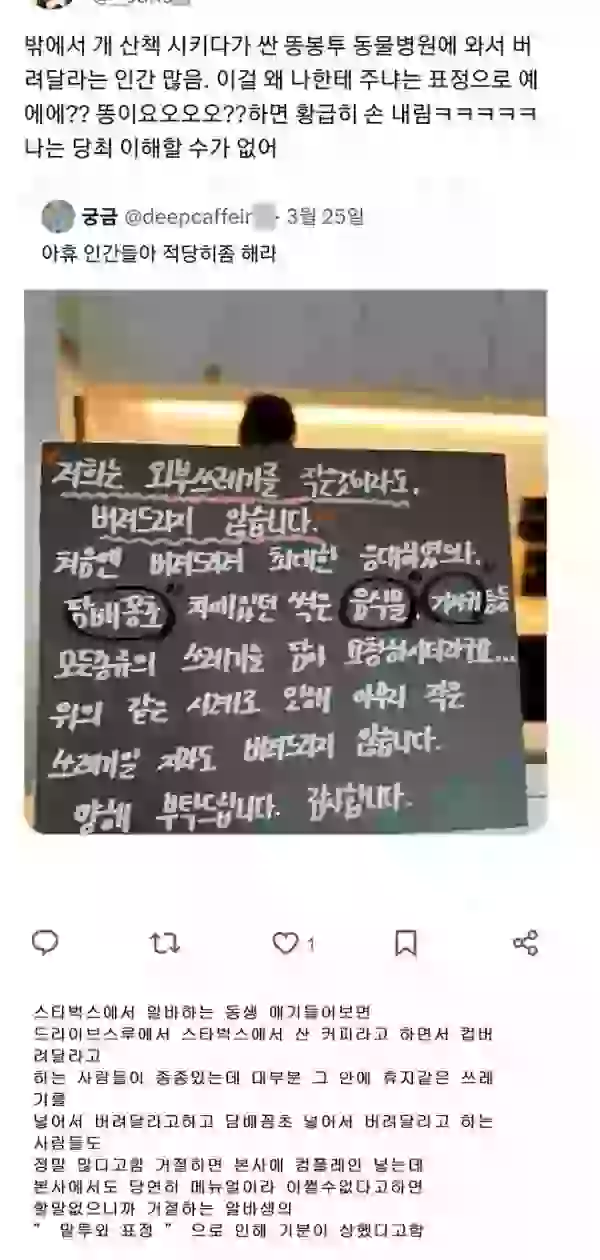 밖에서 개 산책 시키다가 싼 똥봉투 동물병원에 와서 버
려달라는 인간 많음. 이걸 왜 나한테 주냐는 표정으로 예
에에?? 똥이요오오오??하면 황급히 손 내림ㅋㅋㅋㅋㅋ
나는 당최 이해할 수가 없어
궁금 @deepcaffeir · 3월 25일
아휴 인간들아 적당히좀 해라
저희는 외부쓰레기를 작은것이라도,
버려드리지 않습니다.
처음엔 버려드리려 최대한 응대하였으나,
담배꽁초 차에있던 썩은 음식물, 기저귀 등등
모든종류의 쓰레기를 많이 요청하시더라구요...
위의 같은 사례로 인해 아무리 작은
쓰레기일 지라도 버려드리지 않습니다.
양해 부탁드립니다. 감사합니다.
1
스타벅스에서 알바하는 동생 얘기들어보면
드라이브스루에서 스타벅스에서 산 커피라고 하면서 컵버
려달라고
하는 사람들이 종종있는데 대부분 그 안에 휴지같은 쓰레
기를
넣어서 버려달라고하고 담배꽁초 넣어서 버려달라고 하는
사람들도
정말 많다고함 거절하면 본사에 컴플레인 넣는데
본사에서도 당연히 메뉴얼이라 어쩔수없다고하면
할말없으니까 거절하는 알바생의
" 말투와 표정 " 으로 인해 기분이 상했다고함